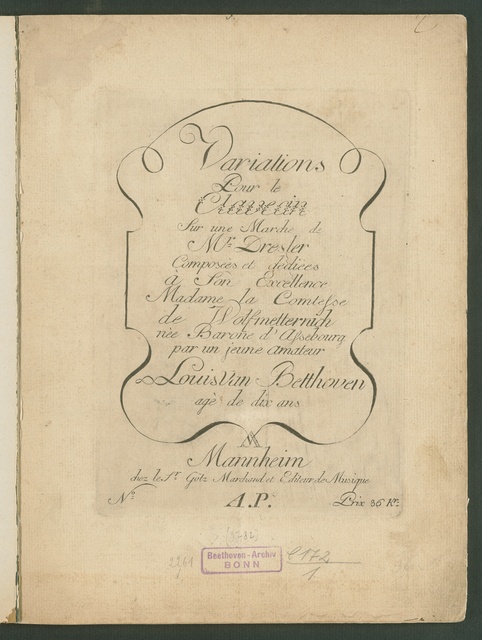 Variations
Pour le
Clavecin
Sur une Marche de
Mr. Dresler
Composées et dèdiées
à Son Excellence
Madame la Comtesse
de Wolfmetternich
nèe Barone d'Assebourg
par un jeune amateur
Louis van Betthoven
agè de dix ans
Mannheim
chez le Sr. Götz Marchand et Editeur de Musique
No.
A.P.
Prix 36 Kr.
(1782)
2261
Beethoven-Archiv
BONN
C 172
1